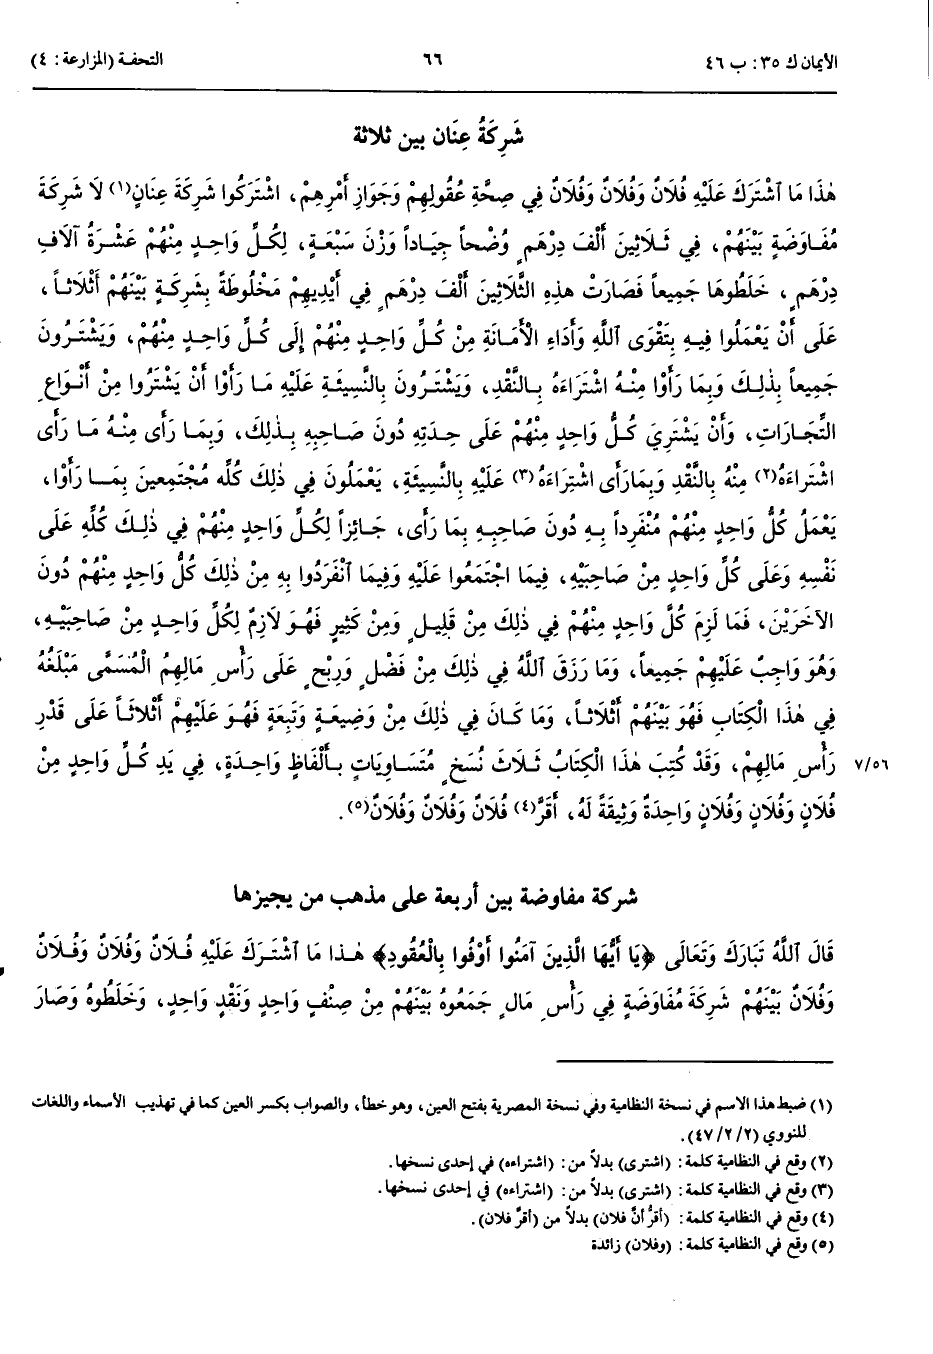 الأيمان ك ٣٥: ب ٤٦ ٦٦ التحفة (المزارعة: ٤)
شَرِكَةُ عِنَان بين ثلاثة
هٰذَا مَا ٱشْتَرَكَ عَلَيْهِ فُلَانٌ وَفُلَانٌ وَفُلَانٌ فِي صِحَّةِ عُقُولِهِمْ وَجَوَازِ أَمْرِهِمْ، اشْتَرَكُوا شَرِكَةَ عِنَانٍ(١) لَا شَرِكَةَ
مُفَاوَضَةٍ بَيْنَهُمْ، فِي ثَلَاثِينَ أَلْفَ دِرْهَمٍ وُضْحاً جِيَاداً وَزْنَ سَبْعَةٍ، لِكُلِّ وَاحِدٍ مِنْهُمْ عَشْرَةُ آلَافِ
دِرْهَمٍ، خَلَطُوهَا جَمِيعاً فَصَارَتْ هذِهِ الثَّلَاثِينَ أَلْفَ دِرْهَمٍ فِي أَيْدِيهِمْ مَخْلُوطَةً بِشَرِكَةٍ بَيْنَهُمْ أَثْلَاثاً،
عَلَى أَنْ يَعْمَلُوا فِيهِ بِتَقْوَى اللَّهِ وَأَدَاءِ الْأَمَانَةِ مِنْ كُلِّ وَاحِدٍ مِنْهُمْ إِلَى كُلِّ وَاحِدٍ مِنْهُمْ، وَيَشْتَرُونَ
جَمِيعاً بِذٰلِكَ وَبِمَا رَأَوْا مِنْهُ اشْتَرَاءَهُ بِالنَّقْدِ، وَيَشْتَرُونَ بِالنَّسِيئَةِ عَلَيْهِ مَا رَأَوْا أَنْ يَشْتَرُوا مِنْ أَنْوَاعِ
التِّجَارَاتِ، وَأَنْ يَشْتَرِيَ كُلُّ وَاحِدٍ مِنْهُمْ عَلَى حِدَتِهِ دُونَ صَاحِبِهِ بِذٰلِكَ، وَبِمَا رَأَى مِنْهُ مَا رَأَى
اشْتَرَاءَهُ(٢) مِنْهُ بِالنَّقْدِ وَبِمَارَأَى اشْتِرَاءَهُ(٣) عَلَيْهِ بِالنَّسِيئَةِ، يَعْمَلُونَ فِي ذٰلِكَ كُلِّه مُجْتَمِعينَ بِمَا رَأَوْا،
يَعْمَلُ كُلُّ وَاحِدٍ مِنْهُمْ مُنْفَرِداً بِهِ دُونَ صَاحِبِهِ بِمَا رَأَى، جَائِزاً لِكُلِّ وَاحِدٍ مِنْهُمْ فِي ذٰلِكَ كُلِّهِ عَلَى
نَفْسِهِ وَعَلَى كُلِّ وَاحِدٍ مِنْ صَاحِبَيْهِ، فِيمَا اجْتَمَعُوا عَلَيْهِ وَفِيمَا ٱنْفَرَدُوا بِهِ مِنْ ذٰلِكَ كُلُّ وَاحِدٍ مِنْهُمْ دُونَ
الآخَرَيْنِ، فَمَا لَزِمَ كُلَّ وَاحِدٍ مِنْهُمْ فِي ذٰلِكَ مِنْ قَلِيلٍ وَمِنْ كَثِيرٍ فَهُوَ لَازِمٌ لِكُلِّ وَاحِدٍ مِنْ صَاحِبَيْهِ،
وَهُوَ وَاجِبٌ عَلَيْهِمْ جَمِيعاً، وَمَا رَزَقَ ٱللَّهُ فِي ذٰلِكَ مِنْ فَضْلٍ وَرِبْحٍ عَلَى رَأْسِ مَالِهِمُ الْمُسَمَّى مَبْلَغُهُ
فِي هٰذَا الْكِتَابِ فَهُوَ بَيْنَهُمْ أَثْلَاثاً، وَمَا كَانَ فِي ذٰلِكَ مِنْ وَضِيعَةٍ وَتَبِعَةٍ فَهُوَ عَلَيْهِمْ أَثْلَاثاً عَلَى قَدْرِ
٧/٥٦ رَأْسِ مَالِهِمْ، وَقَدْ كُتِبَ هٰذَا الْكِتَابُ ثَلَاثَ نُسَخٍ مُتَسَاوِيَاتٍ بِأَلْفَاظٍ وَاحِدَةٍ، فِي يَدِ كُلِّ وَاحِدٍ مِنْ
فُلَانٍ وَفُلَانٍ وَفُلَانٍ وَاحِدَةٌ وَثِيقَةً لَهُ، أَقَرَّ(٤) فُلَانٌ وَفُلَانٌ وَفُلَانٌ(٥).
شركة مفاوضة بين أربعة على مذهب من يجيزها
قَالَ ٱللَّهُ تَبَارَكَ وَتَعَالَى ﴿يَا أَيُّهَا الَّذِينَ آمَنُوا أَوْفُوا بِالْعُقُودِ﴾ هٰذَا مَا ٱشْتَرَكَ عَلَيْهِ فُلَانٌ وَفُلَانٌ وَفُلَانٌ
وَفُلَانٌ بَيْنَهُمْ شَرِكَةَ مُفَاوَضَةٍ فِي رَأْسِ مَالٍ جَمَعُوهُ بَيْنَهُمْ مِنْ صِنْفٍ وَاحِدٍ وَنَقْدٍ وَاحِدٍ، وَخَلَطُوهُ وَصَارَ
(١) ضبط هذا الاسم في نسخة النظامية وفي نسخة المصرية بفتح العين، وهو خطأ، والصواب بكسر العين كما في تهذيب الأسماء واللغات
للنووي (٤٧/٢/٢).
(٢) وقع في النظامية كلمة: (اشترى) بدلاً من: (اشتراءه) في إحدى نسخها.
(٣) وقع في النظامية كلمة: (اشترى) بدلاً من: (اشتراءه) في إحدى نسخها.
(٤) وقع في النظامية كلمة: (أقرُّ أنَّ فلان) بدلاً من (أقرَّ فلان).
(٥) وقع في النظامية كلمة: (وفلان) زائدة